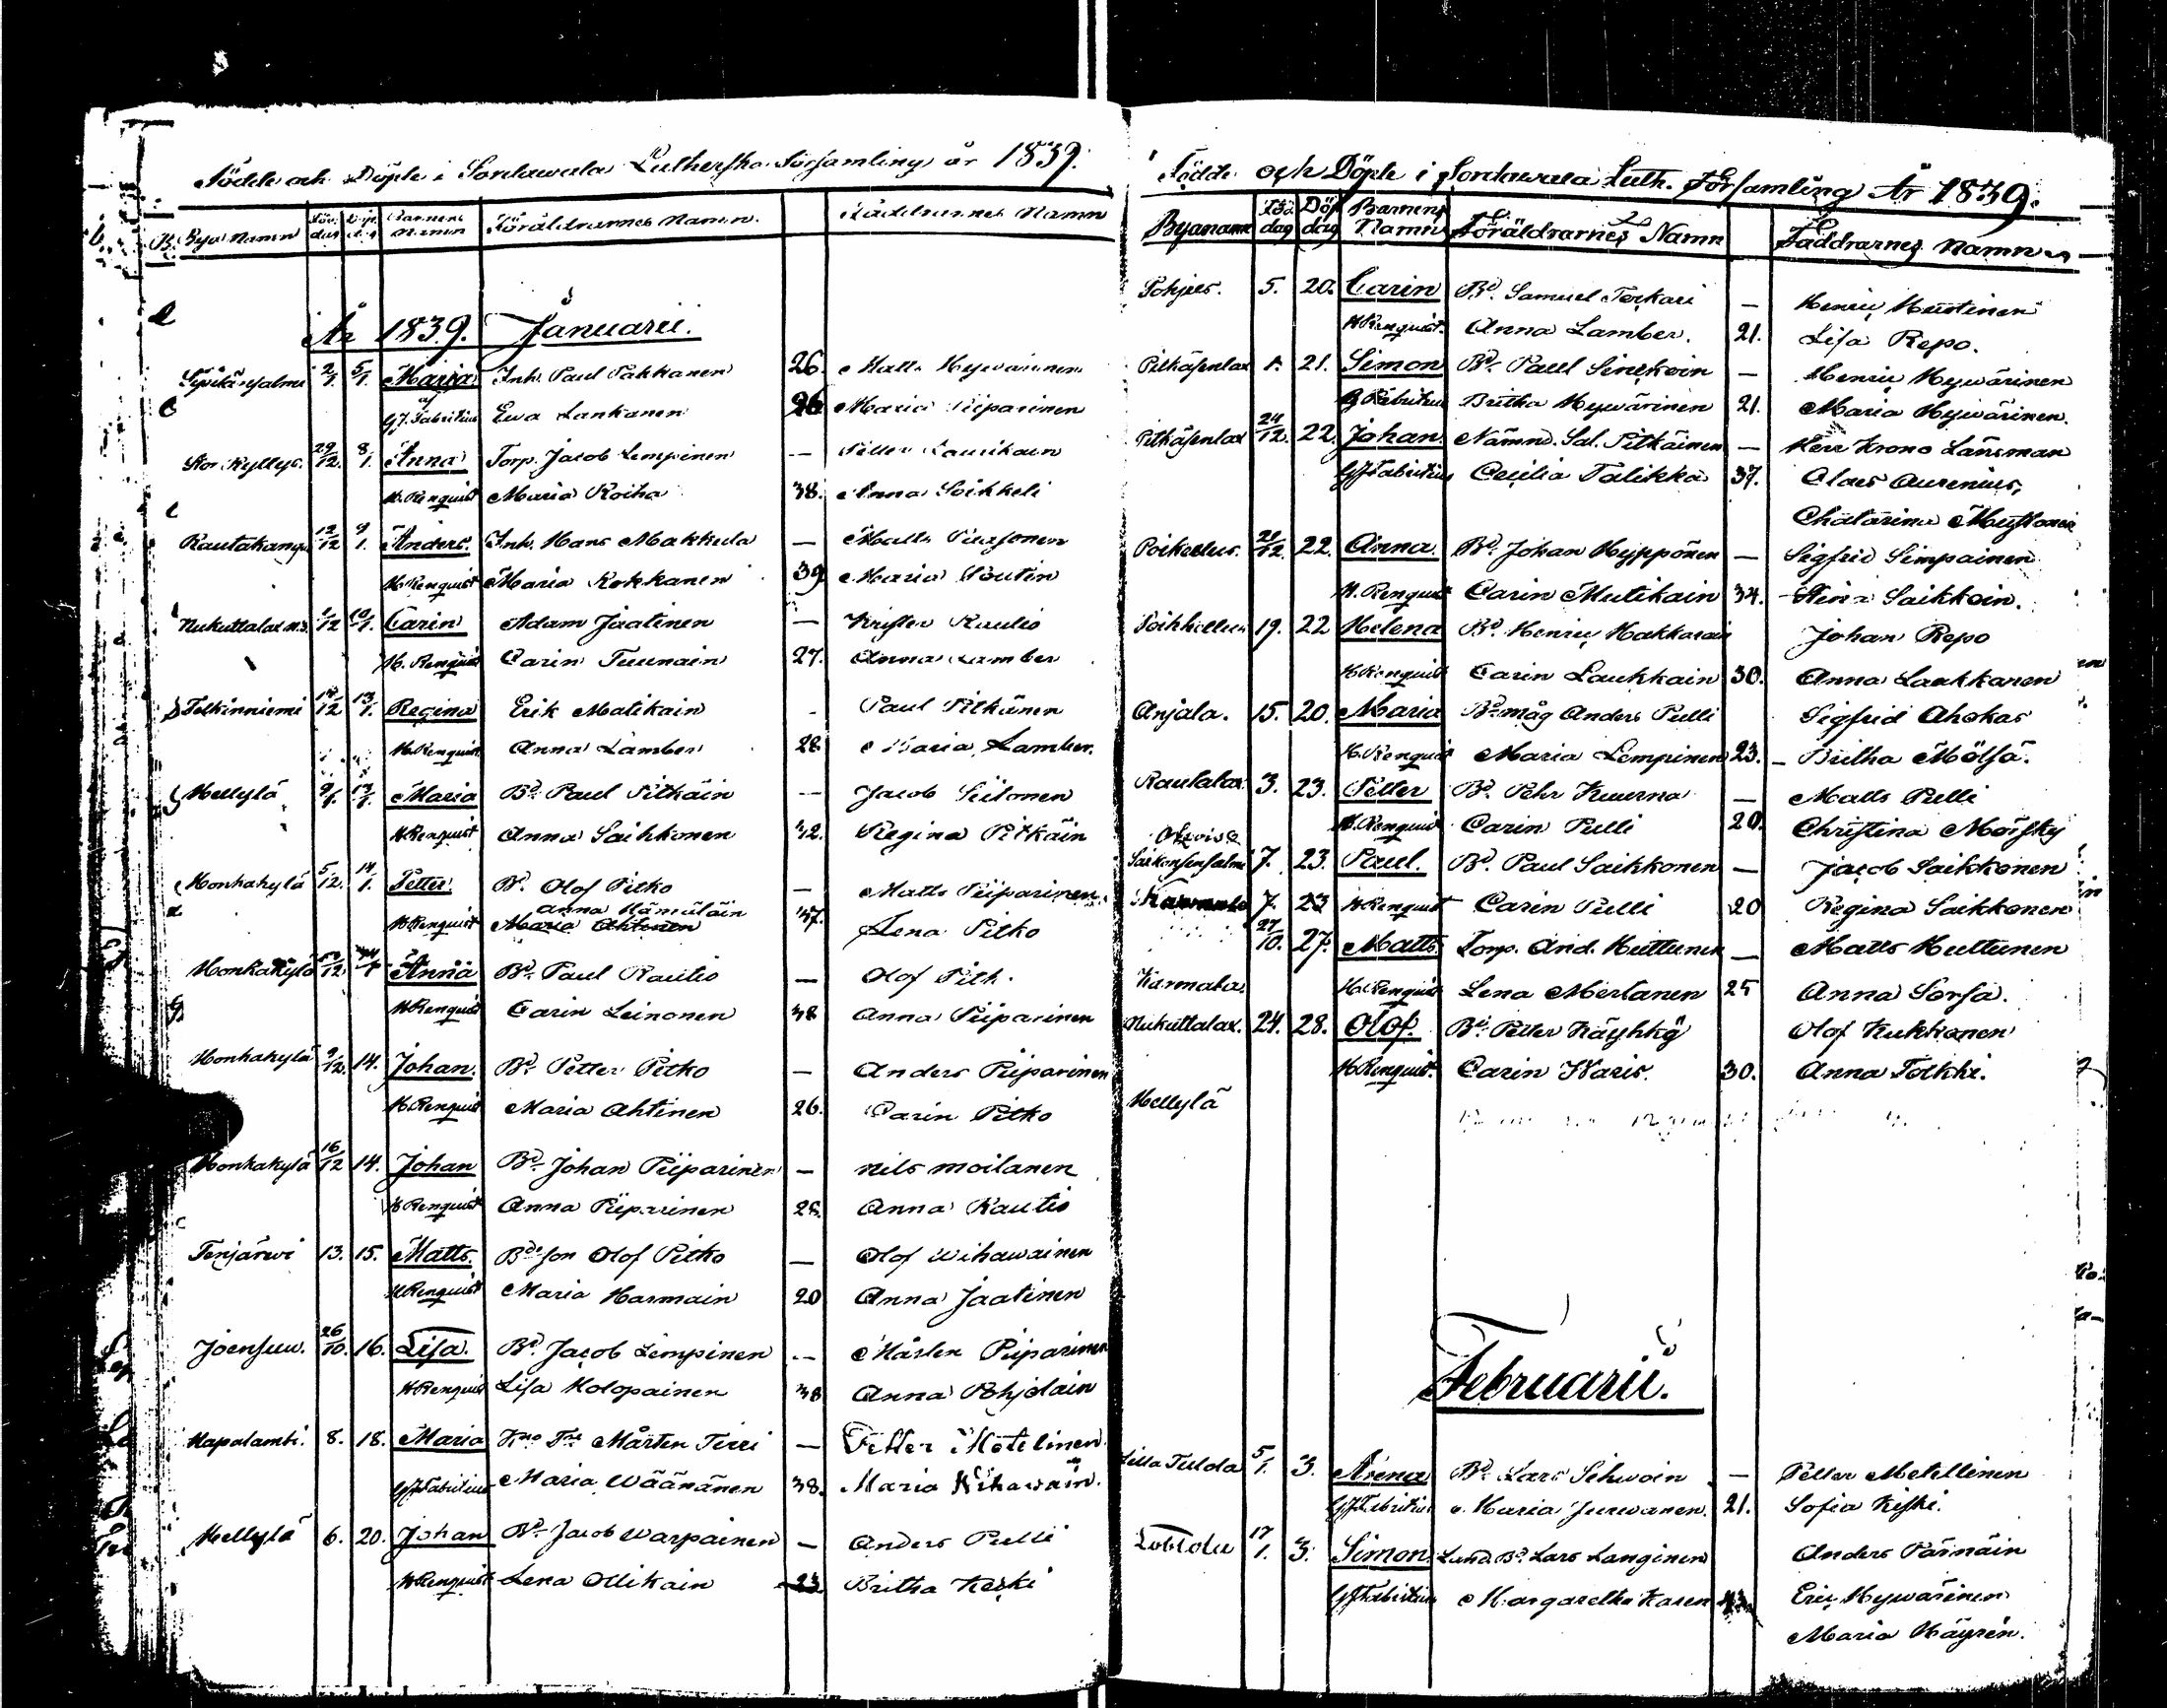 Födde och Döpte i Sordawala Lutherska Församling år 1839.
By. Namn Föd. dag Döp. dag Barnens Namn Föräldrarnes Namn. Faddrarnes Namn
År 1839. Januarii.
2/1. 5/1. Maria Inh. Paul Pakkanen 26. Matts Hyvärinen
af G.J. Fabritius Ewa Lankanen 26 Maria Piiparinen
29/12. 8/1. Anna Torp. Jacob Lempinen — Petter Laurikain
H. Renquist Maria Roiha 38. Anna Soikkeli
Rautakangas 12/12 9/1. Anders. Inh. Hans Makkula —
H. Renquist Maria Kokkanen 39 Maria Poutin
Nukuttalax 1/12 10/1. Carin Adam Jaatinen — Krister Rautio
H. Renquist Carin Tuunain 27. Anna Lamber
Tolkinniemi 14/12 13/1. Regina Erik Matikain Paul Pitkänen
H. Renquist Anna Lamber 28 Maria Lamber.
Hellylä 9/1. 13/1. Maria Bd. Paul Pitkäin — Jacob Siitonen
H. Renquist Anna Saikkonen 42. Regina Pitkäin
Honkakylä 5/12. 14/1. Petter. Bd. Olof Pitko — Matts Piiparinen.
Anna Hämäläin
H. Renquist Maria Ahtinen 37. Lena Pitko
Honkakylä Anna Bd. Paul Rautio — Olof Pitk.
H. Renquist Carin Leinonen 38 Anna Piiparinen
Honkakylä 9/12. 14. Johan. Bd. Petter Pitko — Anders Piiparinen
H. Renquist Maria Ahtinen 26. Carin Pitko
Honkakylä 16/12 14. Johan Bd. Johan Piiparinen — Nils Moilanen
H. Renquist Anna Piiparinen 28. Anna Rautio
Tenjärwi 13. 15. Matts. Bde Son Olof Pitko — Olof Wihawainen
H. Renquist Maria Harmain 20 Anna Jaatinen
Joensuu. 26/10. 16. Lisa. Bd. Jacob Lempinen — Mårten Piiparinen
H. Renquist Lisa Holopainen 38 Anna Pohjolain
Hapalambi. 8. 18. Maria Mårten Tirri — Petter Metelinen
G.J. Fabritius Maria Väänänen 38. Maria Wihawain.
Hellylä 6. 20. Johan Bd. Jacob Warpainen — Anders Pulli
H. Renquist Lena Ollikain 23 Britha Keski
Födde och Döpte i Sordawala Luth. Församling År 1839.
Byanamn Föd. dag Döp. dag Barnens Namn Föräldrarnes Namn Faddrarnes Namn
Pohjus. 5. 20. Carin Bd. Samuel Torkari — Henric Mustinen
H. Renquist. Anna Lamber. 21. Lisa Repo.
Pitkäsenlax 1. 21. Simon Bd. Paul Sinckoin — Henric Hyvärinen
G. Fabritius Britha Hyvärinen 21. Maria Hyvärinen.
Pitkäsenlax 24/12. 22. Johan. Nämnd. Sal. Pitkäinen — Herr Krono Länsman
G.J. Fabritius Cecilia Talikka 37. Claes Aurenius,
Chatarina
21/12. 22. Anna. Bd. Johan Hyppönen — Sigfrid Simpainen
H. Renquist Carin Mutikain 34. Stina Saikkoin.
19. 22 Helena Bd. Henric Makkarain Johan Repo
H. Renquist Carin Laukkain 30. Anna Laukkanen
Anjala. 15. 20. Maria Bd. måg Anders Pulli Sigfrid Ahokas
H. Renquist Maria Lempinen 23. Britha Mölsä.
Rautalax. 3. 23. Petter Bd. Pehr Kuurna — Matts Pulli
H. Renquist Carin Pulli 20. Christina Moisky
Saikonsensalmi 7. 23. Paul. Bd. Paul Saikkonen — Jacob Saikkonen
7. 23 H. Renquist Carin Pulli 20 Regina Saikkonen
27/10. 27. Matts. Torp. And. Huttunen — Matts Huttunen
Karmala. H. Renquist Lena Mertanen 25 Anna Sorsa.
Nukuttalax. 24. 28. Olof. Bd. Petter Käyhkö Olof Kukkonen
H. Renquist. Carin Karis. 30. Anna Tolkki.
Hellylä
Februarii.
Lilla Tulola 5/1. 3. Arena Bd. Lars Sihwoin — Petter Metellinen
G.J. Fabritius Maria Juuvanen. 21. Sofia Kiski.
17/1. 3. Simon Land Bd. Lars Langinen Anders Pärnäin
G.J. Fabritius Margaretha Kasen 43. Eric Hyvärinen
Maria Häyrin.